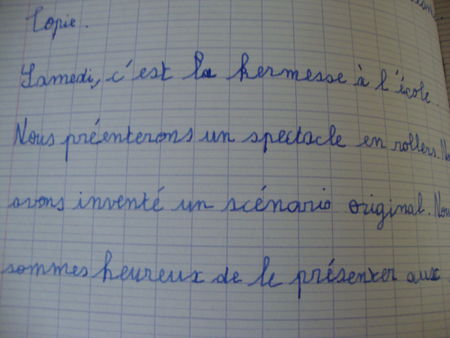 Copie.
Samedi, c'est la kermesse à l'école.
Nous préenterons un spectacle en rollers. No
avons inventé un scénario original. Nou
sommes heureux de le présenter aux